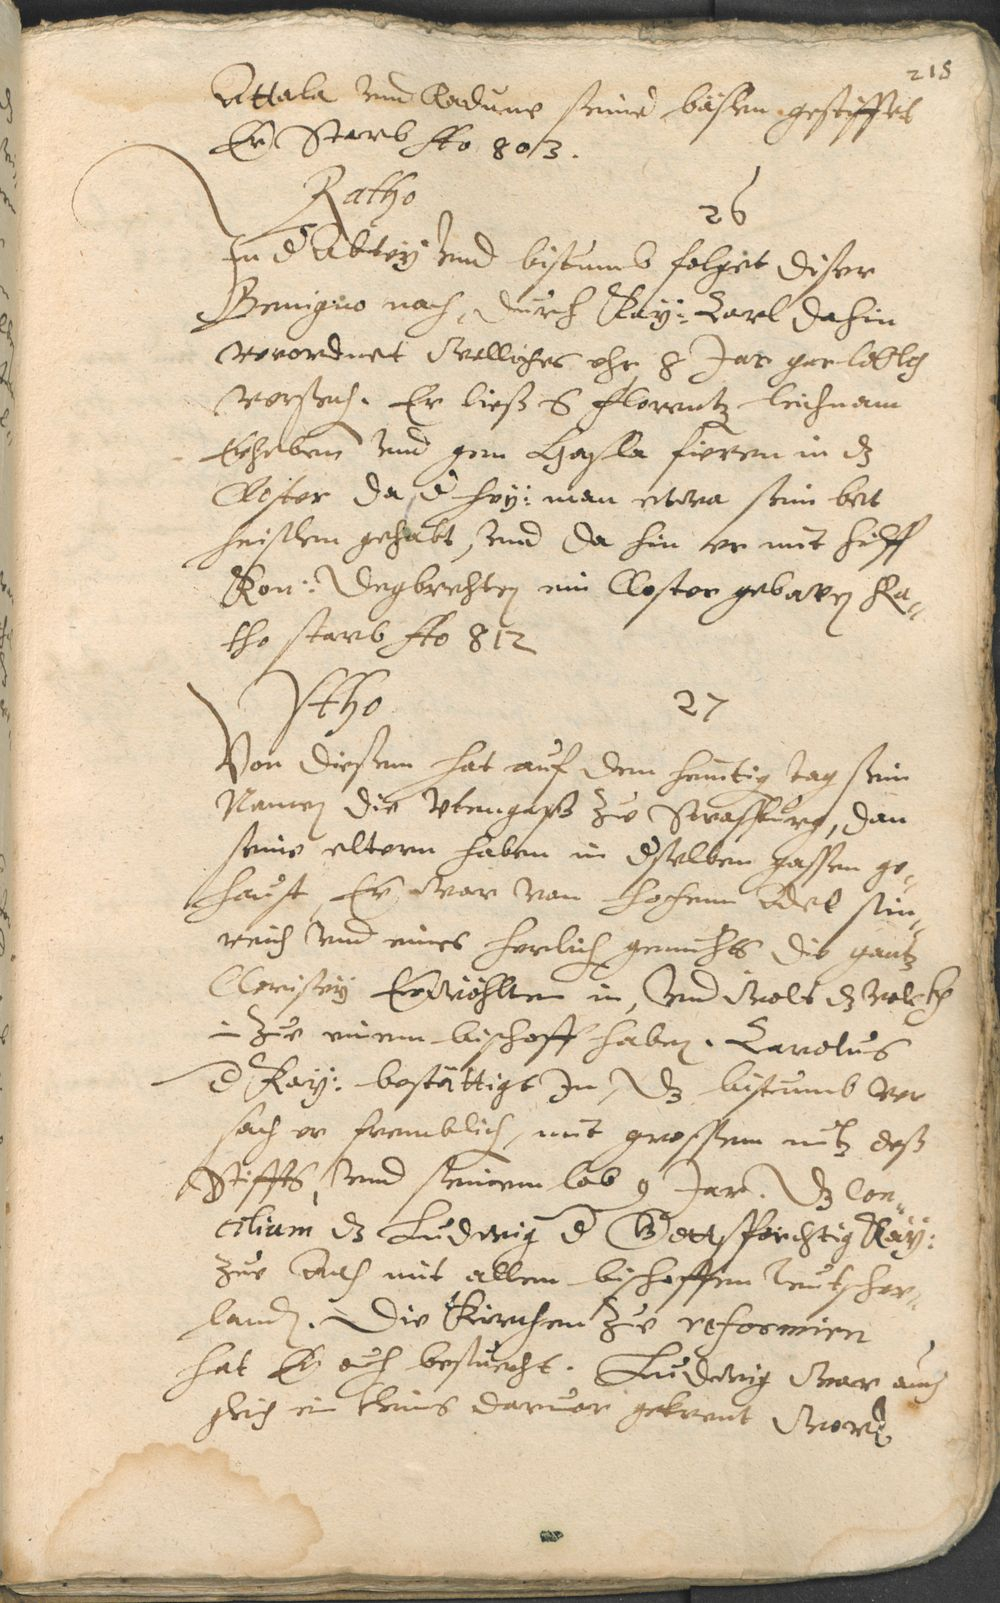 215
Attala vnd Radune seine bäsen gestifftet
Er Starb Ao 803.
Ratho 26
In d' Abtey vnd bistumb folget diser
Benigno nach, durch Kay: Carl dahin
verordnet Welliches ehr 8 Jar gar loblich
versach. Er ließ S Florentz leichnam
Erheben vnd gem Hasla fieren in dz
Closter da d' hey: man etwa sein bet
heislem gehabt, vnd da hin er mit hilff
Kön: Degbrechten ein Closter gebawen Ra„
tho starb Ao 812
Vtho 27
Von diesem hat auf den heuttig tag sein
Namen die Vtengaß zue Straßburg, dan
seine eltern haben in dselben gassen ge„
haust, Er war von hohem Adel sin„
reich vnd eines herlich gemiehts die gantz
Clerisey Erwöhlten in, vnd Wolt dz volckh
in zue einem bischoff haben. Carolus
d' Kay: bestättigt In, dz bistumb ver
sach er fremblich, mit grossem nutz deß
Stiffts, vnd seinem lob 9 Jar. dz Con„
cilium dz Ludwig d' Gottsferchtig Kay:
zue Ach mit allen bischoffen Teutscher„
landt. Die Kirchen zue reformiern
hat Er auch besuecht. Ludwig War auch
gleich ein kleins daruor gekrent Worden